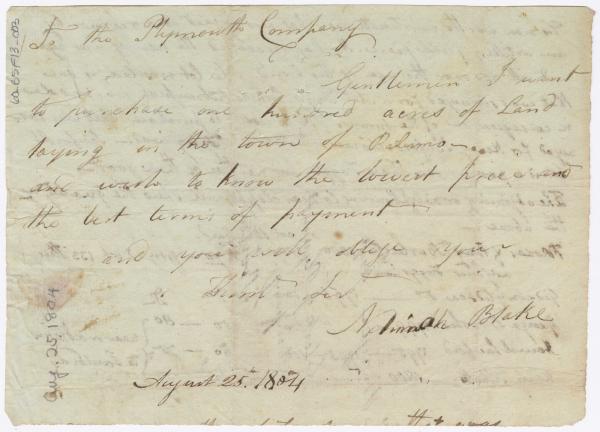 To the Plymouth Company
Gentlemen I want
to purchase one hundred acres of Land
laying in the town of
and wish to know the lowest price and
the best terms of payment
and you will oblige your
Huml Sir
Blake
August 25th 1804
Aug. 25, 1804